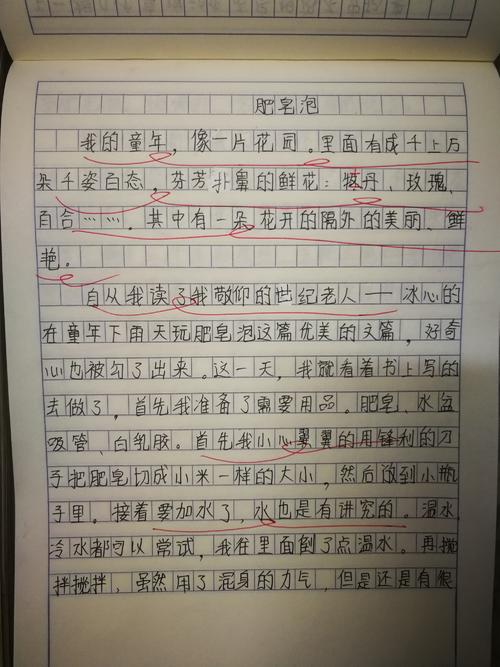 肥皂泡
我的童年，像一片花园。里面有成千上万
朵千姿百态，芬芳扑鼻的鲜花：牡丹、玫瑰、
百合……，其中有一朵花开的隔外的美丽、鲜
艳。
自从我读了我敬仰的世纪老人——冰心的
在童年下雨天玩肥皂泡这篇优美的文篇，好奇
心也被勾了出来。这一天，我就看着书上写的
去做了，首先我准备了需要用品。肥皂、水盆
吸管、白乳胶。首先我小心翼翼的用锋利的刀
子把肥皂切成小米一样的大小，然后放到小瓶
子里。接着要加水了，水也是有讲究的。温水
冷水都可以常试，我往里面倒了点温水。再搅
拌搅拌，虽然用了浑身的力气，但是还是有很